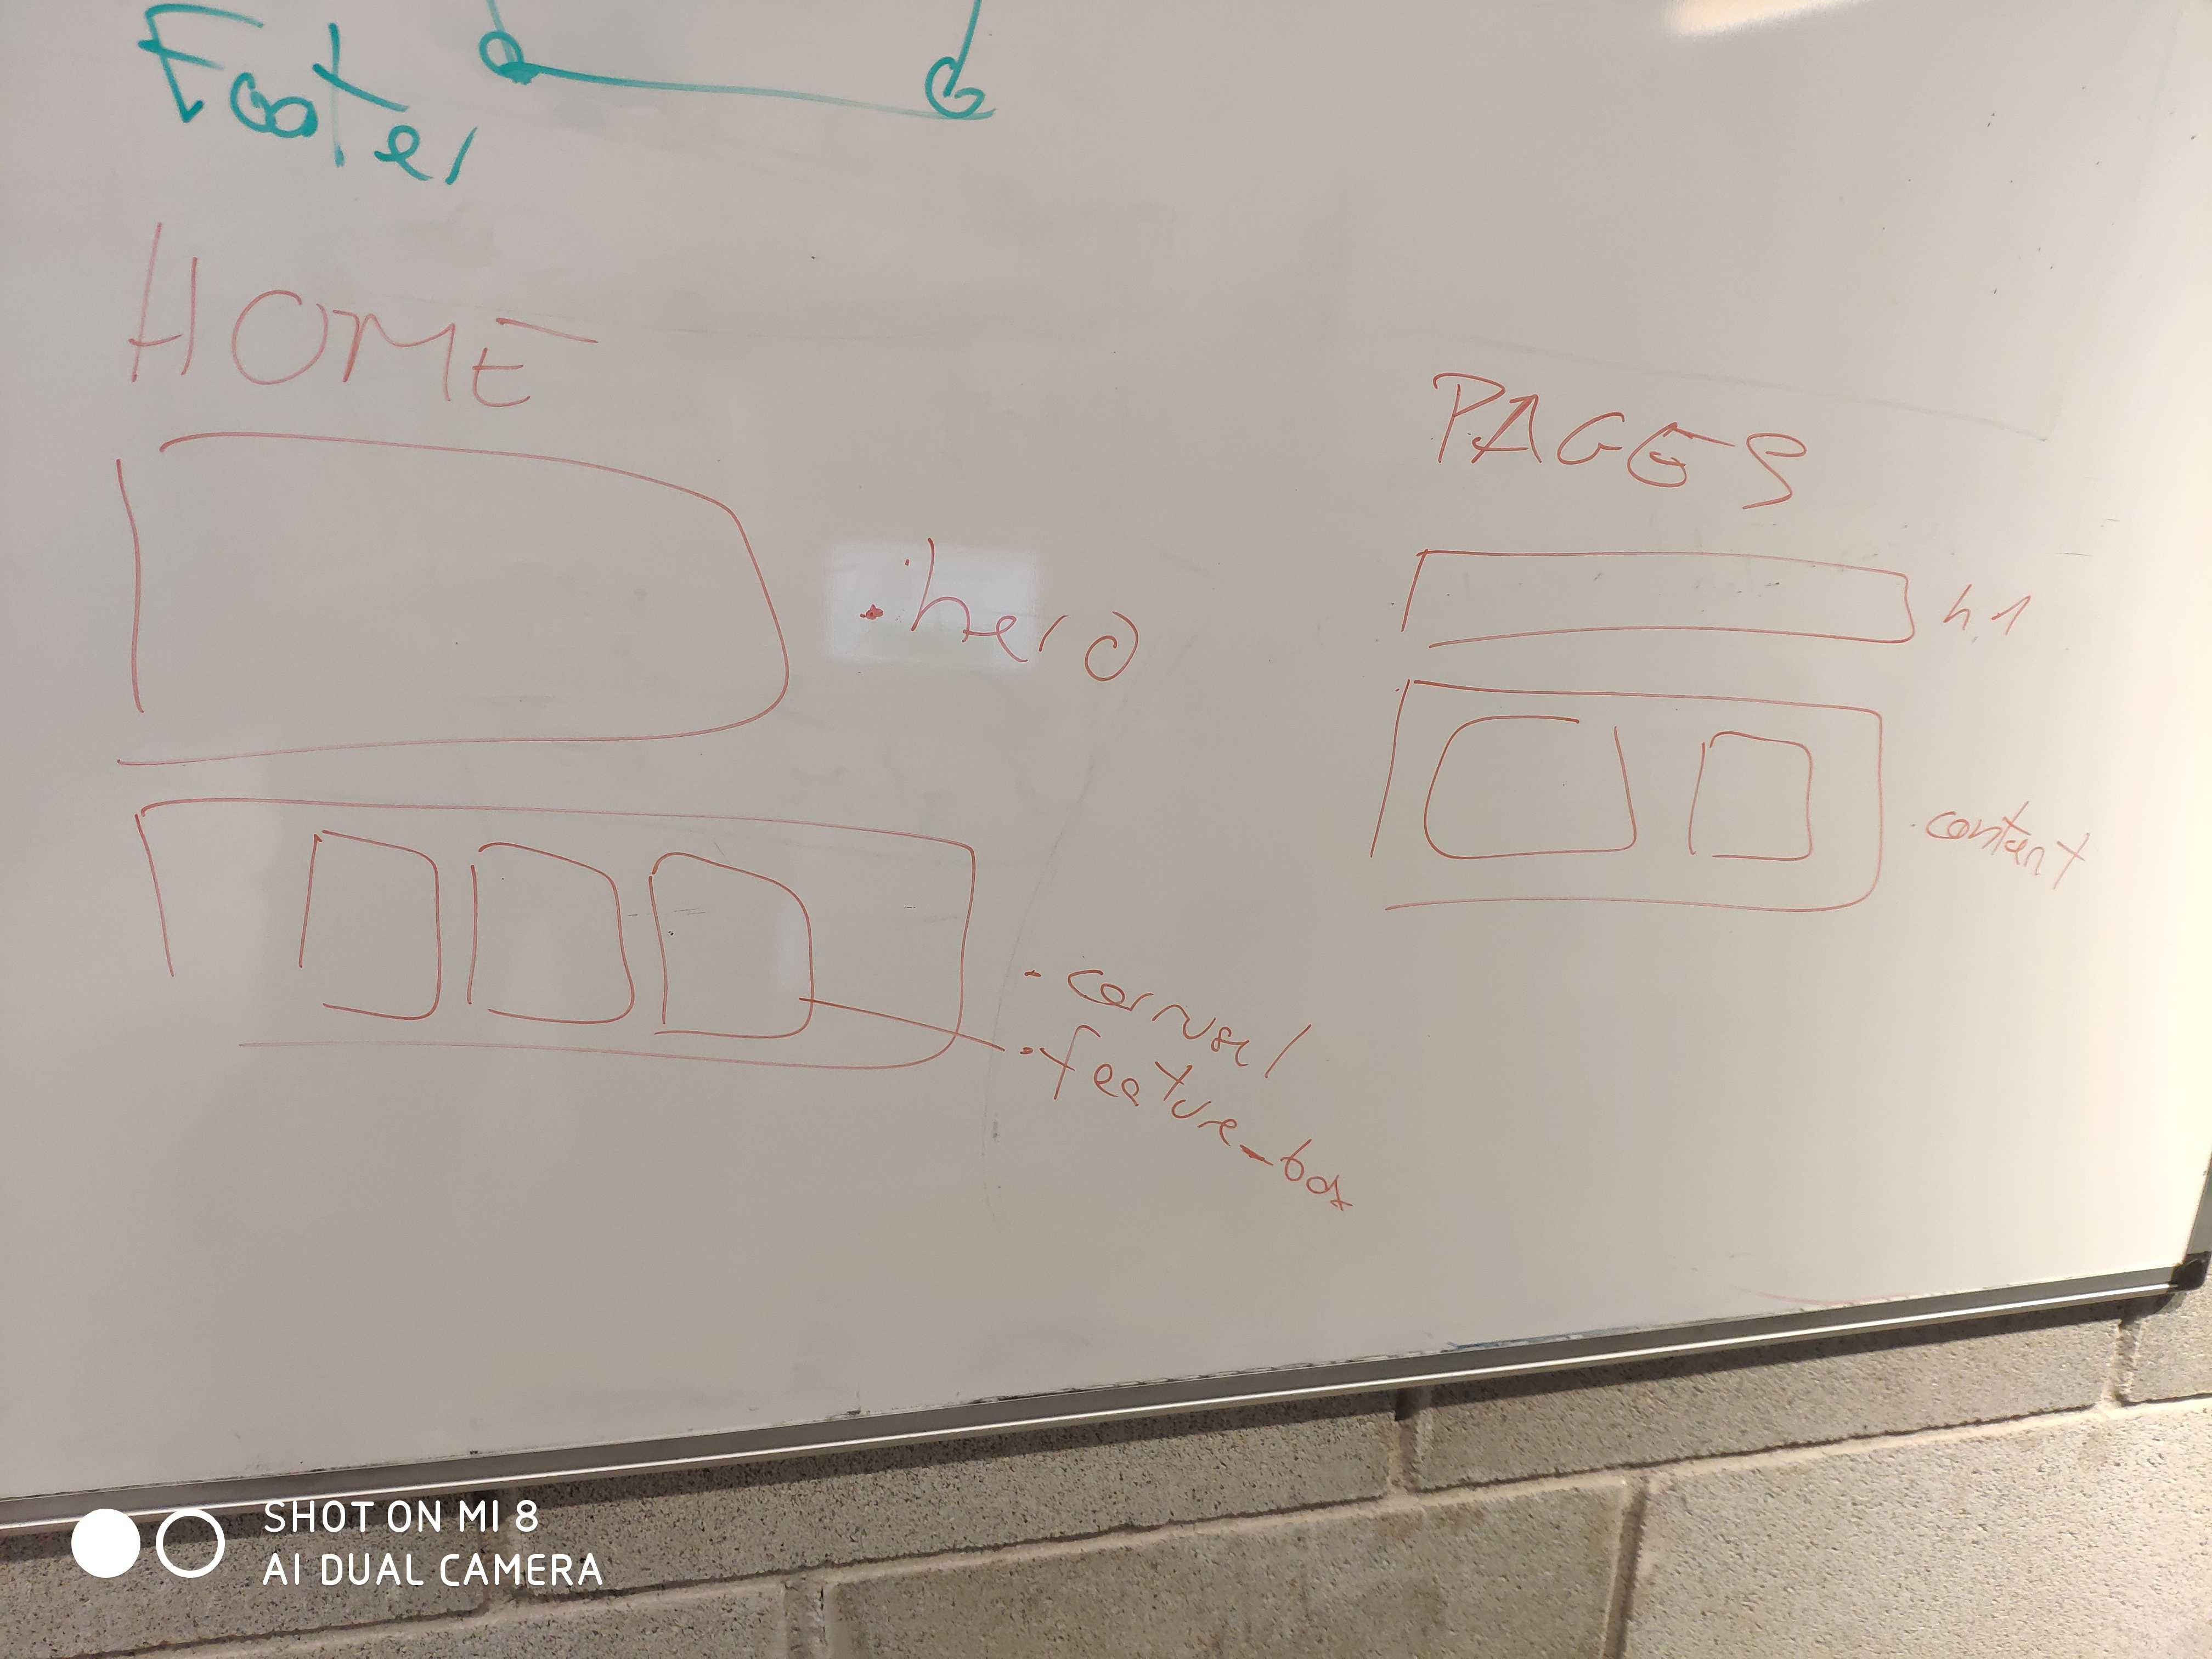 Footer
HOME
.hero
.carrusel
.feature_box
PAGES
h1
.content
SHOT ON MI 8
AI DUAL CAMERA